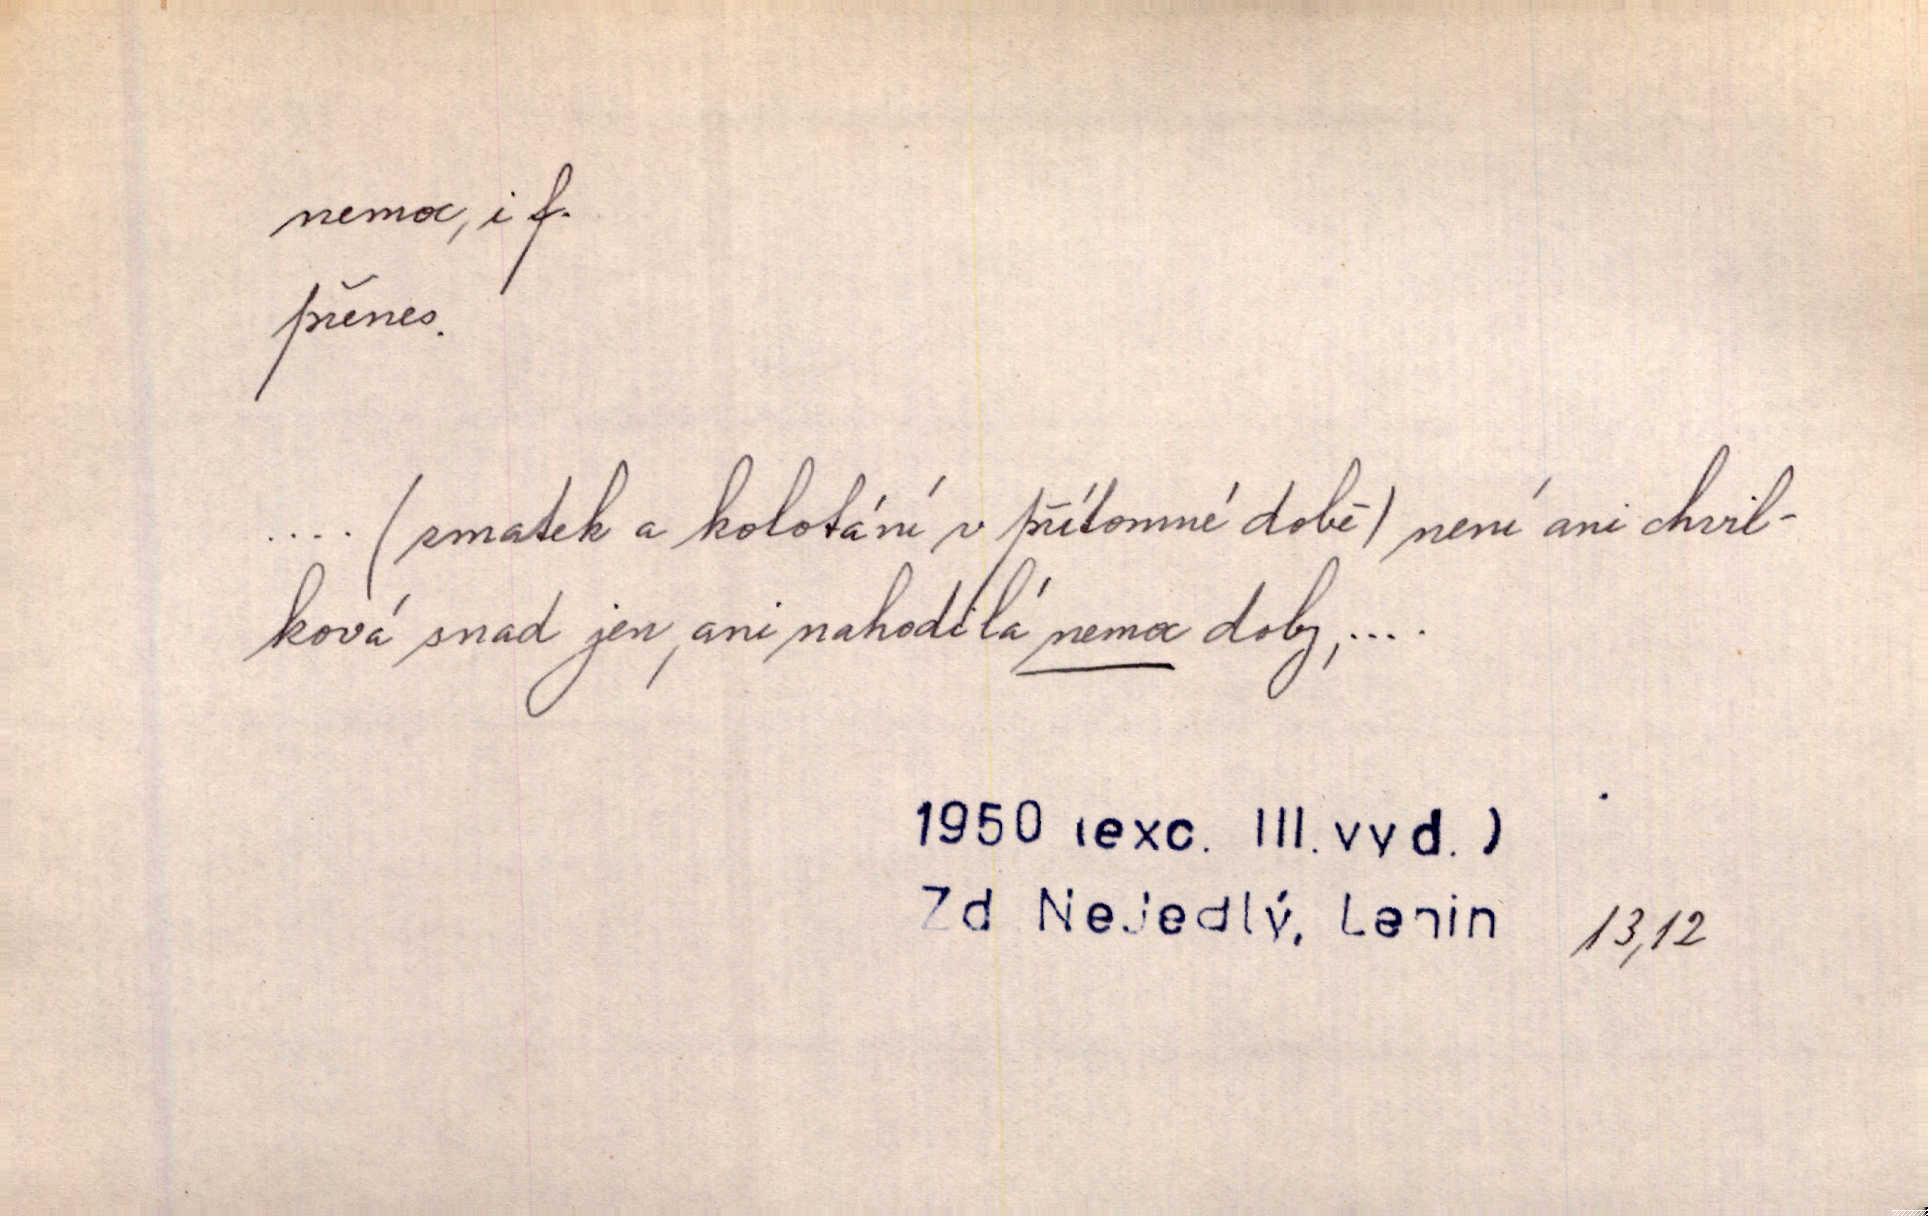 nemoc, i f.
přenes.
.... (zmatek a kolotání v přítomné době) není ani chvil-
ková snad jen, ani nahodilá nemoc doby, ....
1950 (exc. III. vyd.)
Zd Nejedlý, Lenin 13,12